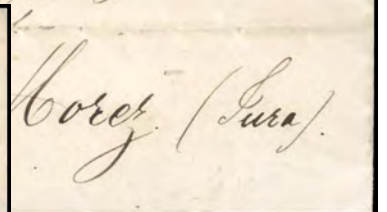 Morez. (Jura).